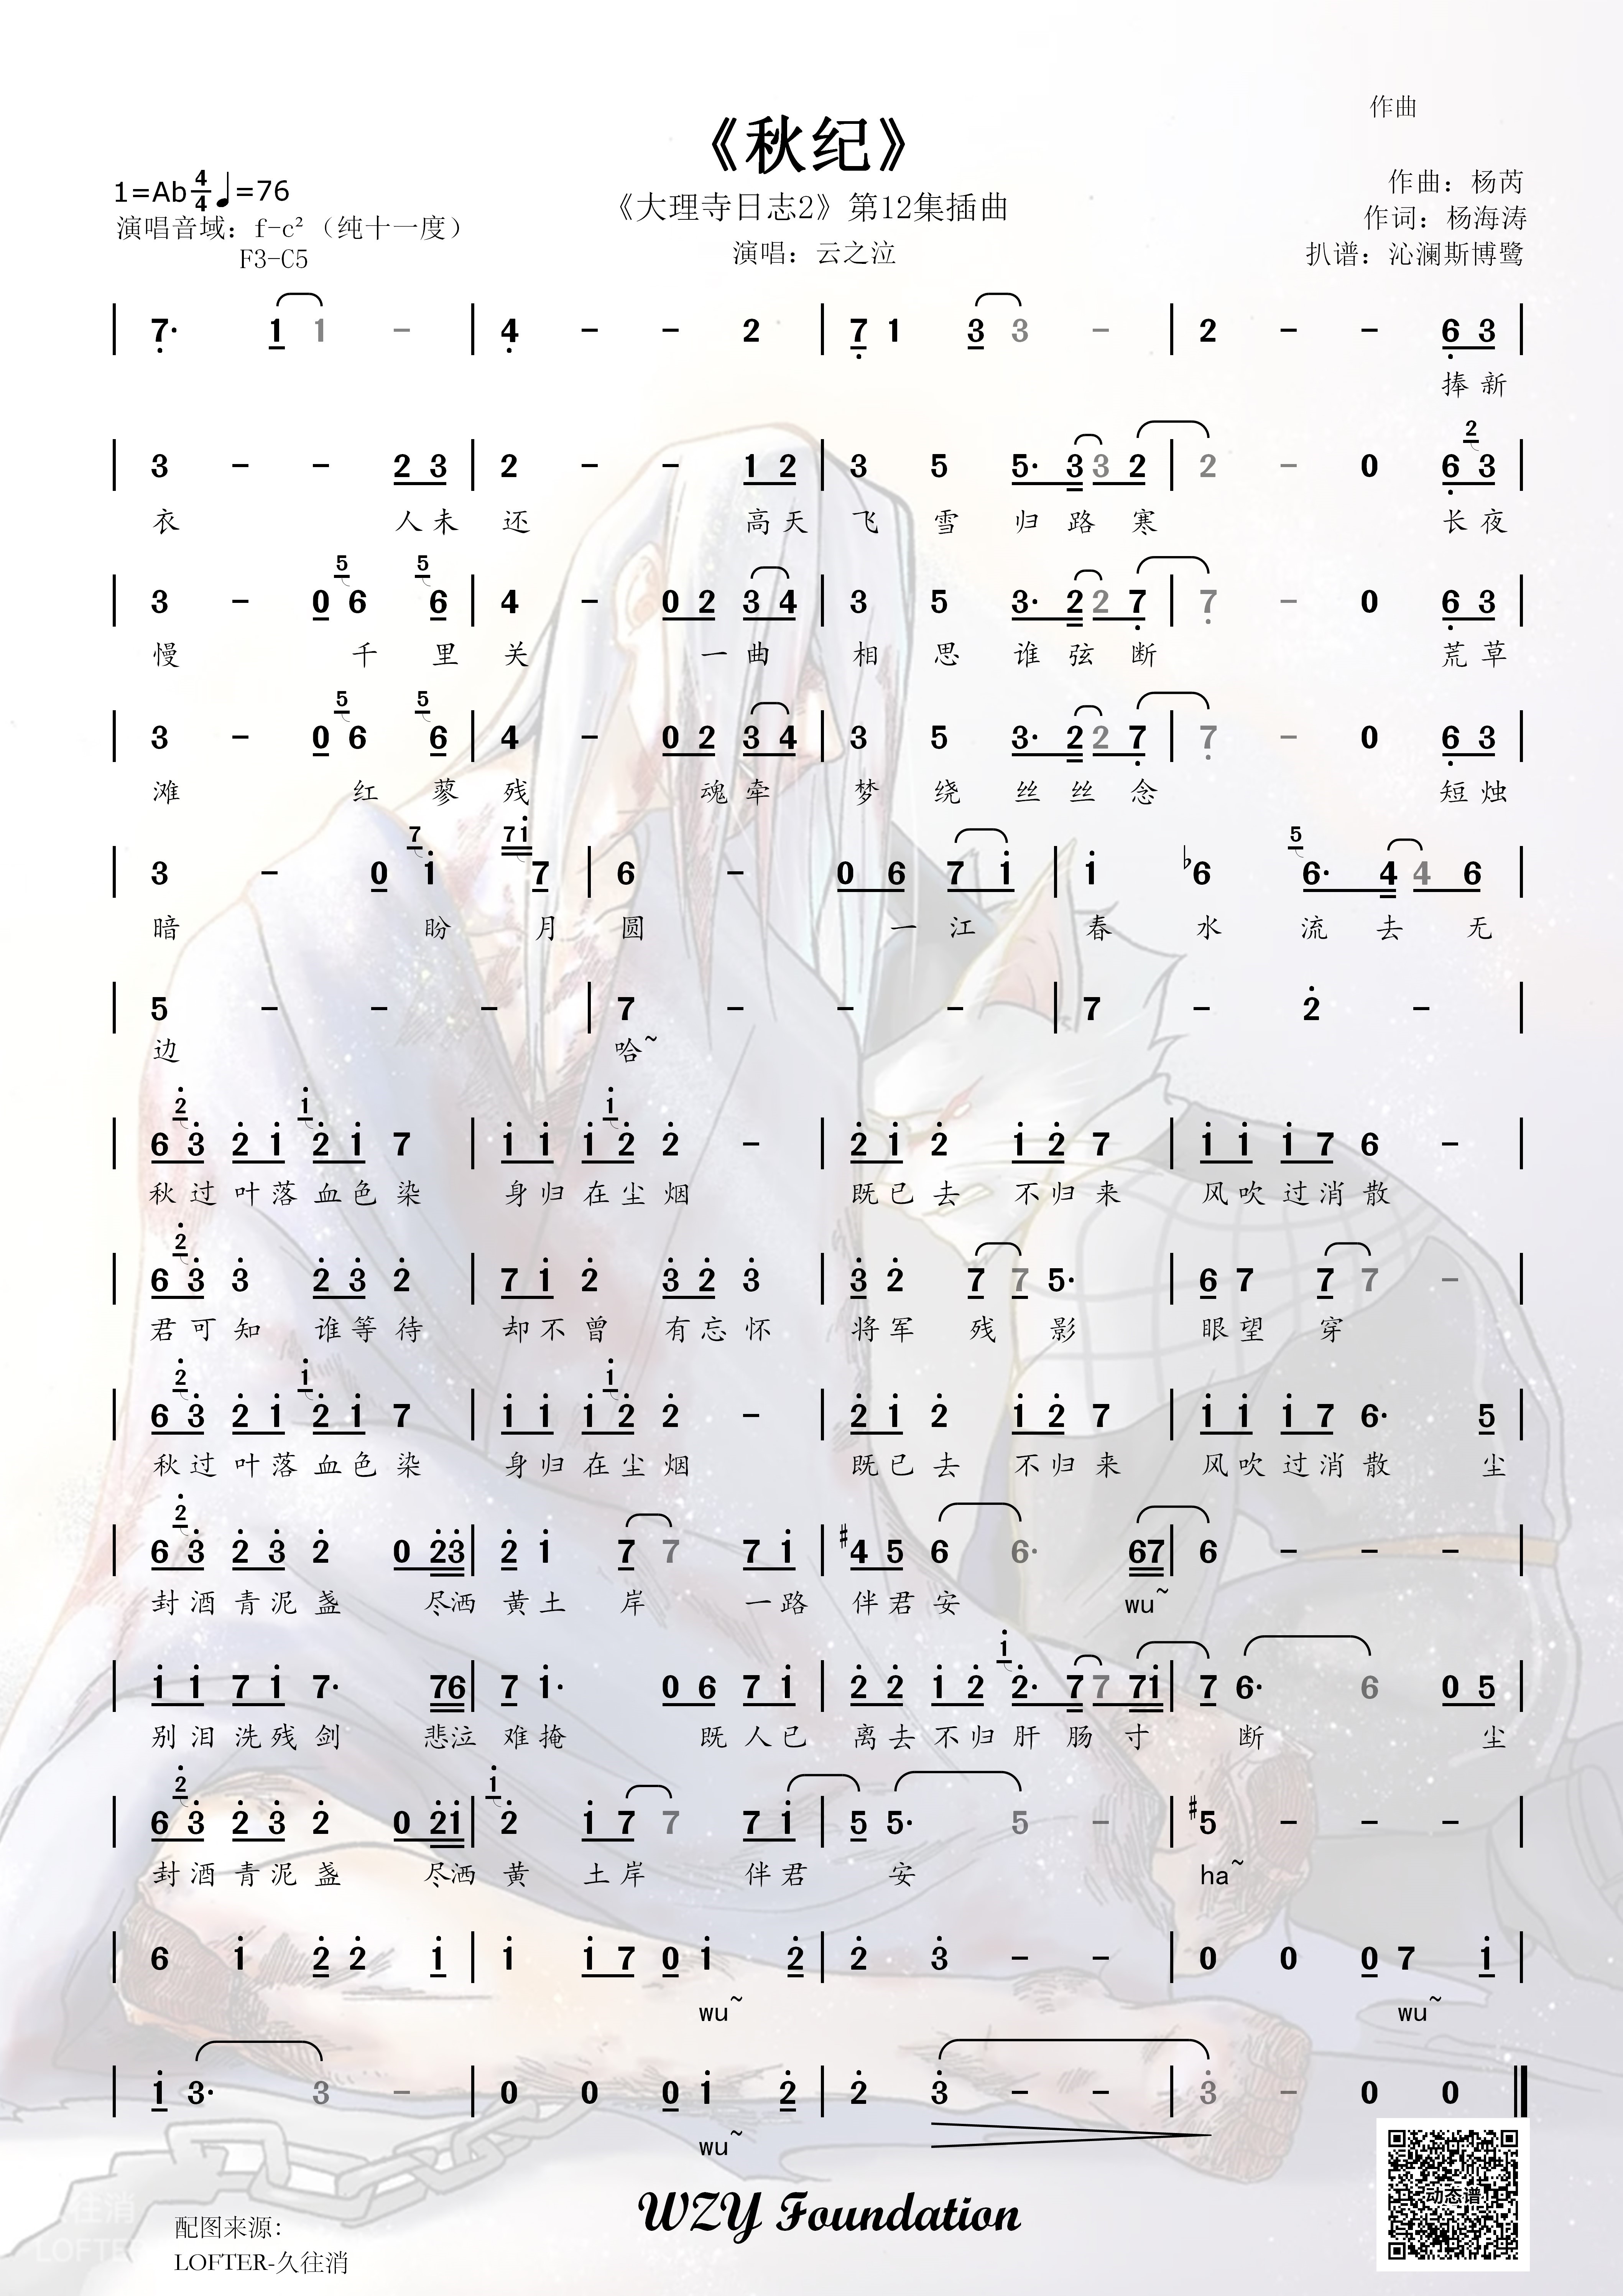 作曲
《秋纪》
1=Ab 4/4 ♩=76
《大理寺日志2》第12集插曲
作曲：杨芮
演唱音域：f-c²（纯十一度）
作词：杨海涛
F3-C5
演唱：云之泣
扒谱：沁澜斯博鹭
7· 1 1 - | 4 - - 2 | 7 1 3 3 - | 2 - - 6 3
捧新
3 - - 2 3 | 2 - - 1 2 | 3 5 5· 3 3 2 | 2 - 0 6 2 3
衣 人未 还 高天 飞 雪 归 路 寒 长夜
3 - 0 5 6 5 6 | 4 - 0 2 3 4 | 3 5 3· 2 2 7 | 7 - 0 6 3
慢 千 里 关 一曲 相 思 谁 弦 断 荒草
3 - 0 5 6 5 6 | 4 - 0 2 3 4 | 3 5 3· 2 2 7 | 7 - 0 6 3
滩 红 蓼 残 魂牵 梦 绕 丝 丝 念 短烛
3 - 0 7 1 7 1 7 | 6 - 0 6 7 1 | 1 ♭6 5 6· 4 4 6
暗 盼 月 圆 一 江 春 水 流 去 无
5 - - - | 7 - - - | 7 - 2 -
边 哈~
6 2 3 2 1 1 2 1 7 | 1 1 1 1 2 2 - | 2 1 2 1 2 7 | 1 1 1 7 6 -
秋过叶落血色染 身归在尘烟 既已去 不归来 风吹过消散
6 2 3 3 2 3 2 | 7 1 2 3 2 3 | 3 2 7 7 5· | 6 7 7 7 -
君可知 谁等待 却不曾 有忘怀 将军 残 影 眼望 穿
6 2 3 2 1 1 2 1 7 | 1 1 1 1 2 2 - | 2 1 2 1 2 7 | 1 1 1 7 6· 5
秋过叶落血色染 身归在尘烟 既已去 不归来 风吹过消散 尘
6 2 3 2 3 2 0 2 3 | 2 1 7 7 7 1 | ♯4 5 6 6· 6 7 | 6 - - -
封酒青泥盏 尽洒 黄土 岸 一路 伴君安 wu~
1 1 7 1 7· 7 6 | 7 1· 0 6 7 1 | 2 2 1 2 1 2· 7 7 7 1 | 7 6· 6 0 5
别泪洗残剑 悲泣 难掩 既人已 离去不归肝肠寸 断 尘
6 2 3 2 3 2 0 2 1 | 1 2 1 7 7 7 1 | 5 5· 5 - | ♯5 - - -
封酒青泥盏 尽洒 黄 土岸 伴君 安 ha~
6 1 2 2 1 | 1 1 7 0 1 2 | 2 3 - - | 0 0 0 7 1
wu~ wu~
1 3· 3 - | 0 0 0 1 2 | 2 3 - - | 3 - 0 0
wu~
WZY Foundation
动态谱
配图来源：
LOFTER-久往消